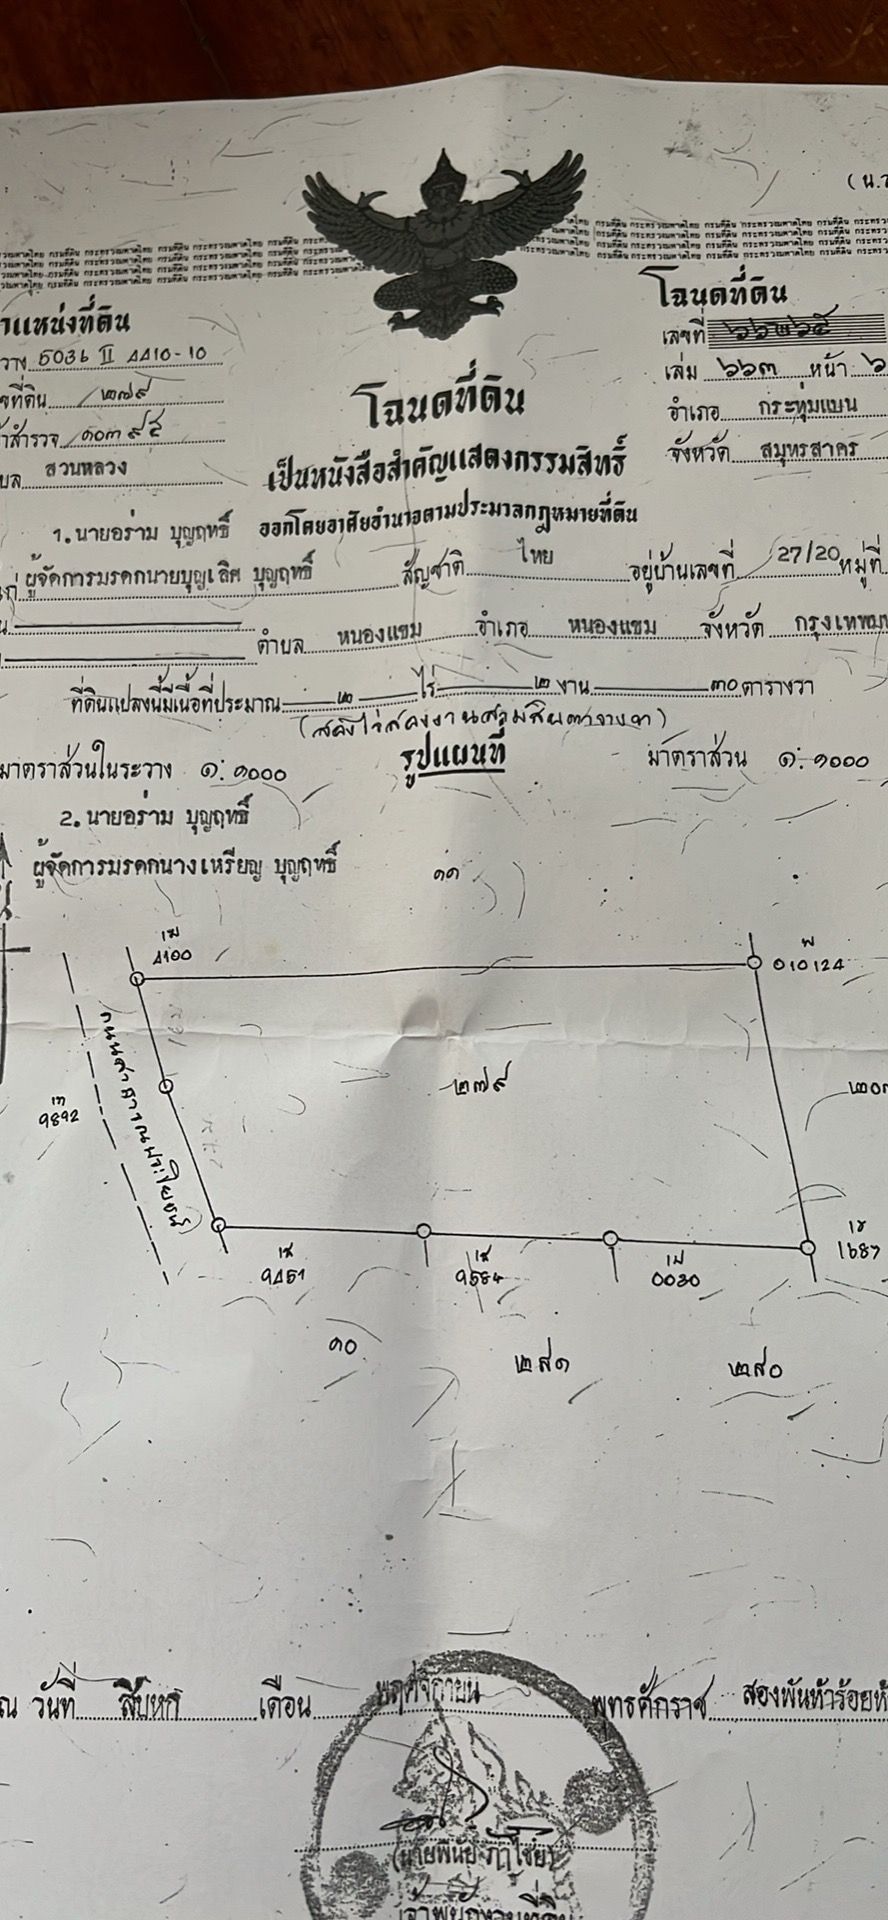 (น.ว
กรมที่ดิน กระทรวงมหาดไทย กรมที่ดิน กระทรวงมหาดไทย กรมที่ดิน
โฉนดที่ดิน
ำแหน่งที่ดิน
เลขที่ ๖๖๒๖๕
วาง 5036 II 4410-10
เล่ม ๖๖๓ หน้า ๖
ขที่ดิน ๒๗๙
โฉนดที่ดิน
อำเภอ กระทุ่มแบน
้าสำรวจ ๑๐๓๙๕
เป็นหนังสือสำคัญแสดงกรรมสิทธิ์
จังหวัด สมุทรสาคร
บล สวนหลวง
ออกโดยอาศัยอำนาจตามประมวลกฎหมายที่ดิน
1. นายอร่าม บุญฤทธิ์
แก่ ผู้จัดการมรดกนายบุญเลิศ บุญฤทธิ์ สัญชาติ ไทย อยู่บ้านเลขที่ 27/20 หมู่ที่
น ตำบล หนองแขม อำเภอ หนองแขม จังหวัด กรุงเทพมห
ที่ดินแปลงนี้มีเนื้อที่ประมาณ ๒ ไร่ ๒ งาน ๓๐ ตารางวา
(สองไร่สองงานสามสิบตารางวา)
มาตราส่วนในระวาง ๑:๑๐๐๐ รูปแผนที่ มาตราส่วน ๑:๑๐๐๐
2. นายอร่าม บุญฤทธิ์
ผู้จัดการมรดกนางเหรียญ บุญฤทธิ์
๑๑
4100
010124
ถนนสาธารณประโยชน์
๒๗๙
9892
๒๐๓
9451
9584
0030
1687
๑๐
๒๘๑
๒๘๐
ณ วันที่ สิบหก เดือน พฤศจิกายน พุทธศักราช สองพันห้าร้อยห้
เจ้าพนักงานที่ดิน